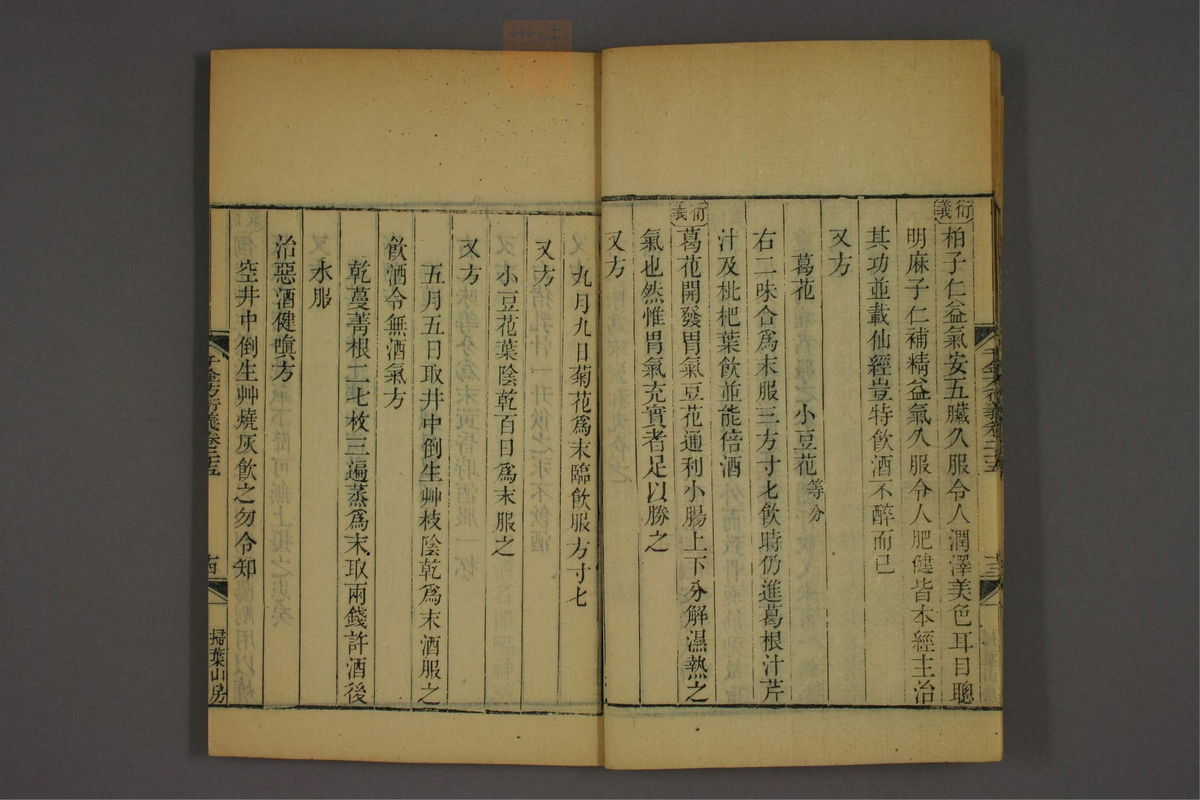 衍義 柏子仁益氣安五臟久服令人潤澤美色耳目聰
明麻子仁補精益氣久服令人肥健皆本經主治
其功並載仙經豈特飲酒不醉而已
又方
葛花 小豆花等分
右二味合爲末服三方寸匕飲時仍進葛根汁芹
汁及枇杷葉飲並能倍酒
衍義 葛花開發胃氣豆花通利小腸上下分解濕熱之
氣也然惟胃氣充實者足以勝之
又方
九月九日菊花爲末臨飲服方寸匕
又方
小豆花葉陰乾百日爲末服之
又方
五月五日取井中倒生艸枝陰乾爲末酒服之
飲酒令無酒氣方
乾蔓菁根二七枚三遍蒸爲末取兩錢許酒後
水服
治惡酒健嗔方
空井中倒生艸燒灰飲之勿令知
千金方衍義卷二十五
十四
掃葉山房